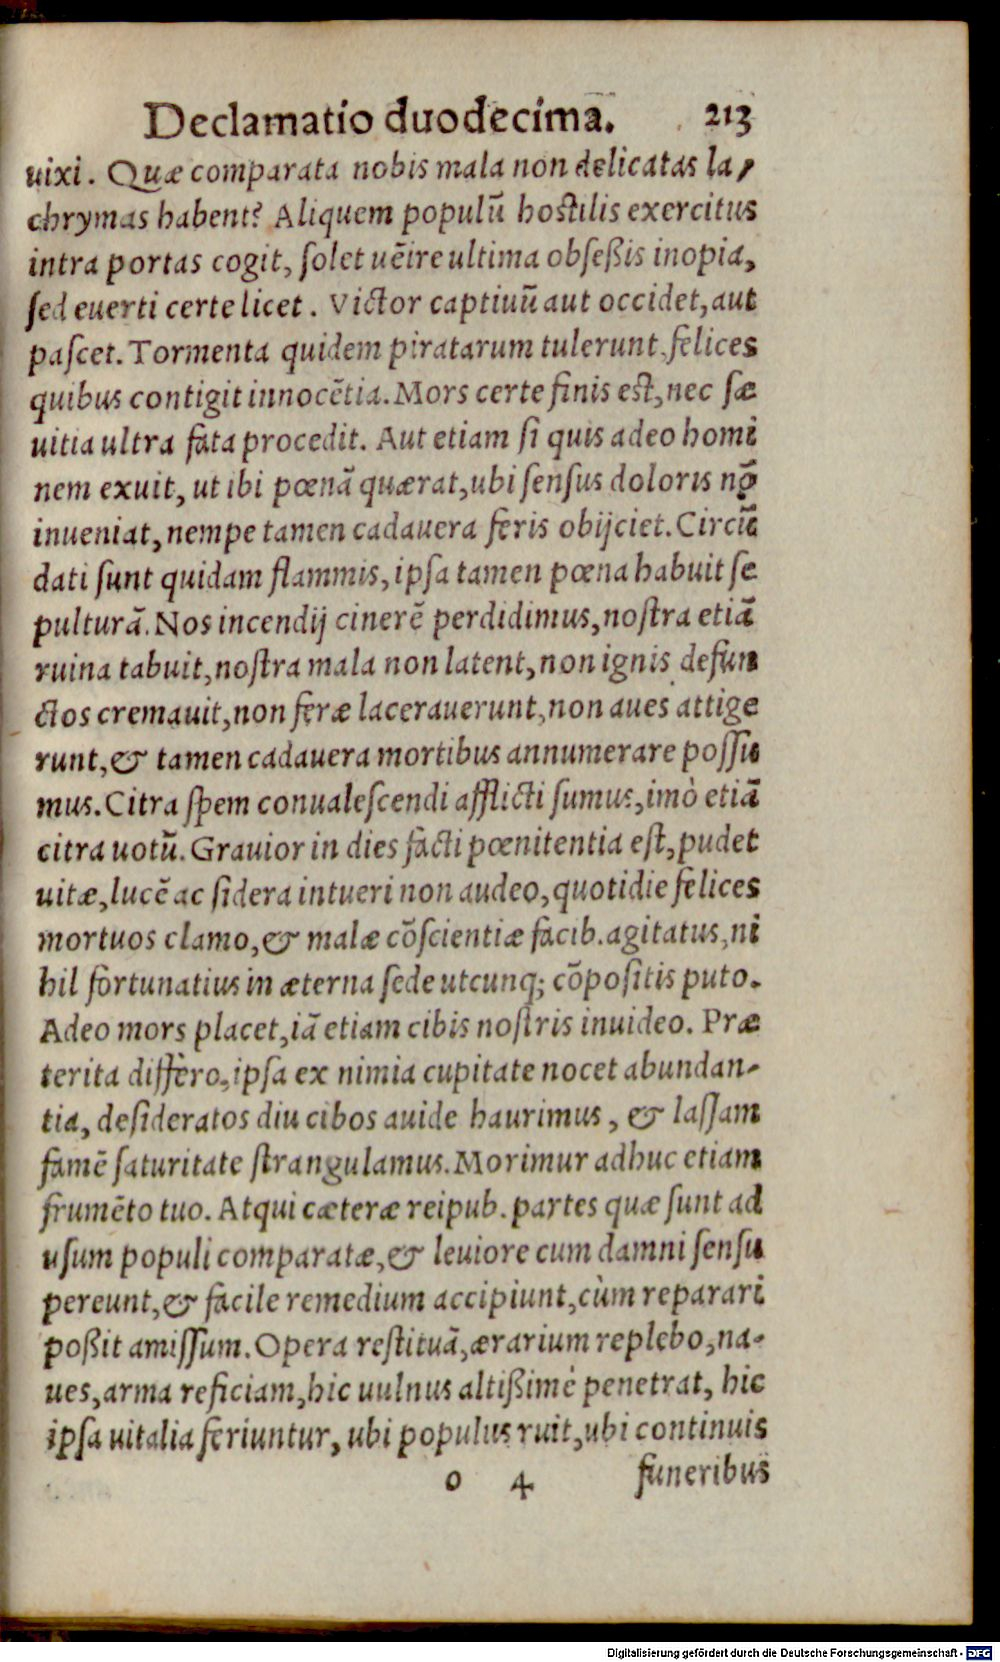 Declamatio duodecima. 213
uixi. Quæ comparata nobis mala non delicatas la,
chrymas habent? Aliquem populū hostilis exercitus
intra portas cogit, ſolet uēire ultima obſeßis inopia,
ſed euerti certe licet. Victor captiuū aut occidet, aut
paſcet. Tormenta quidem piratarum tulerunt, felices
quibus contigit innocētia. Mors certe finis est, nec ſæ
uitia ultra fata procedit. Aut etiam ſi quis adeo homi
nem exuit, ut ibi pœnā quærat, ubi ſenſus doloris nō
inueniat, nempe tamen cadauera feris obijciet. Circū
dati ſunt quidam flammis, ipſa tamen pœna habuit ſe
pulturā. Nos incendij cinerē perdidimus, noſtra etiā
ruina tabuit, noſtra mala non latent, non ignis defun
ctos cremauit, non feræ lacerauerunt, non aues attige
runt, & tamen cadauera mortibus annumerare poſſu
mus. Citra ſpem conualeſcendi afflicti ſumus, imò etiā
citra uotū. Grauior in dies facti pœnitentia eſt, pudet
uitæ, lucē ac ſidera intueri non audeo, quotidie felices
mortuos clamo, & malæ cōſcientiæ facib. agitatus, ni
hil fortunatius in æterna ſede utcunq; cōpoſitis puto.
Adeo mors placet, iā etiam cibis noſtris inuideo. Præ
terita differo, ipſa ex nimia cupitate nocet abundan-
tia, deſideratos diu cibos auide haurimus, & laſſam
famē ſaturitate ſtrangulamus. Morimur adhuc etiam
frumēto tuo. Atqui cæteræ reipub. partes quæ ſunt ad
uſum populi comparatæ, & leuiore cum damni ſenſu
pereunt, & facile remedium accipiunt, cùm reparari
poßit amiſſum. Opera reſtituā, ærarium replebo, na-
ues, arma reficiam, hic uulnus altißimè penetrat, hic
ipſa uitalia feriuntur, ubi populus ruit, ubi continuis
o 4 funeribus
Digitalisierung gefördert durch die Deutsche Forschungsgemeinschaft - DFG